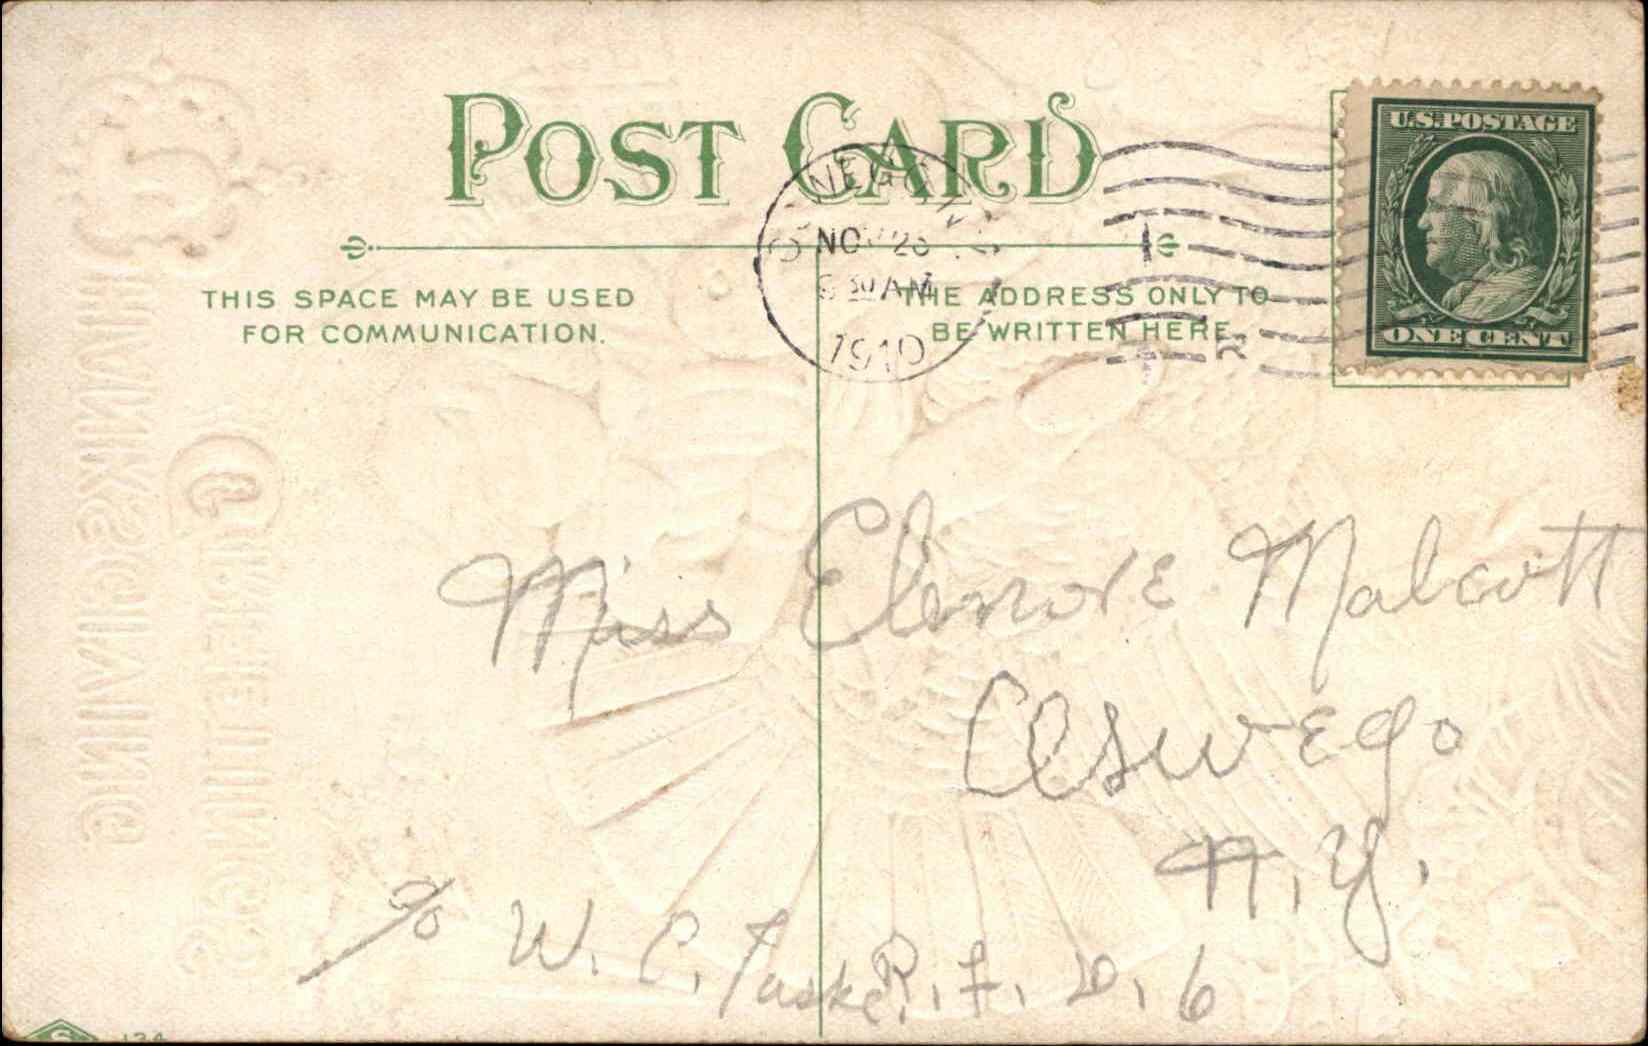 POST CARD
U.S. POSTAGE
NOV 26
30 AM
1910
THIS SPACE MAY BE USED
FOR COMMUNICATION.
THE ADDRESS ONLY TO
BE WRITTEN HERE
ONE CENT
THANKSGIVING
GREETINGS
Miss Elenore Malcott
Oswego
N.Y.
c/o W. C. Tasker R. F. D. 6
S 134